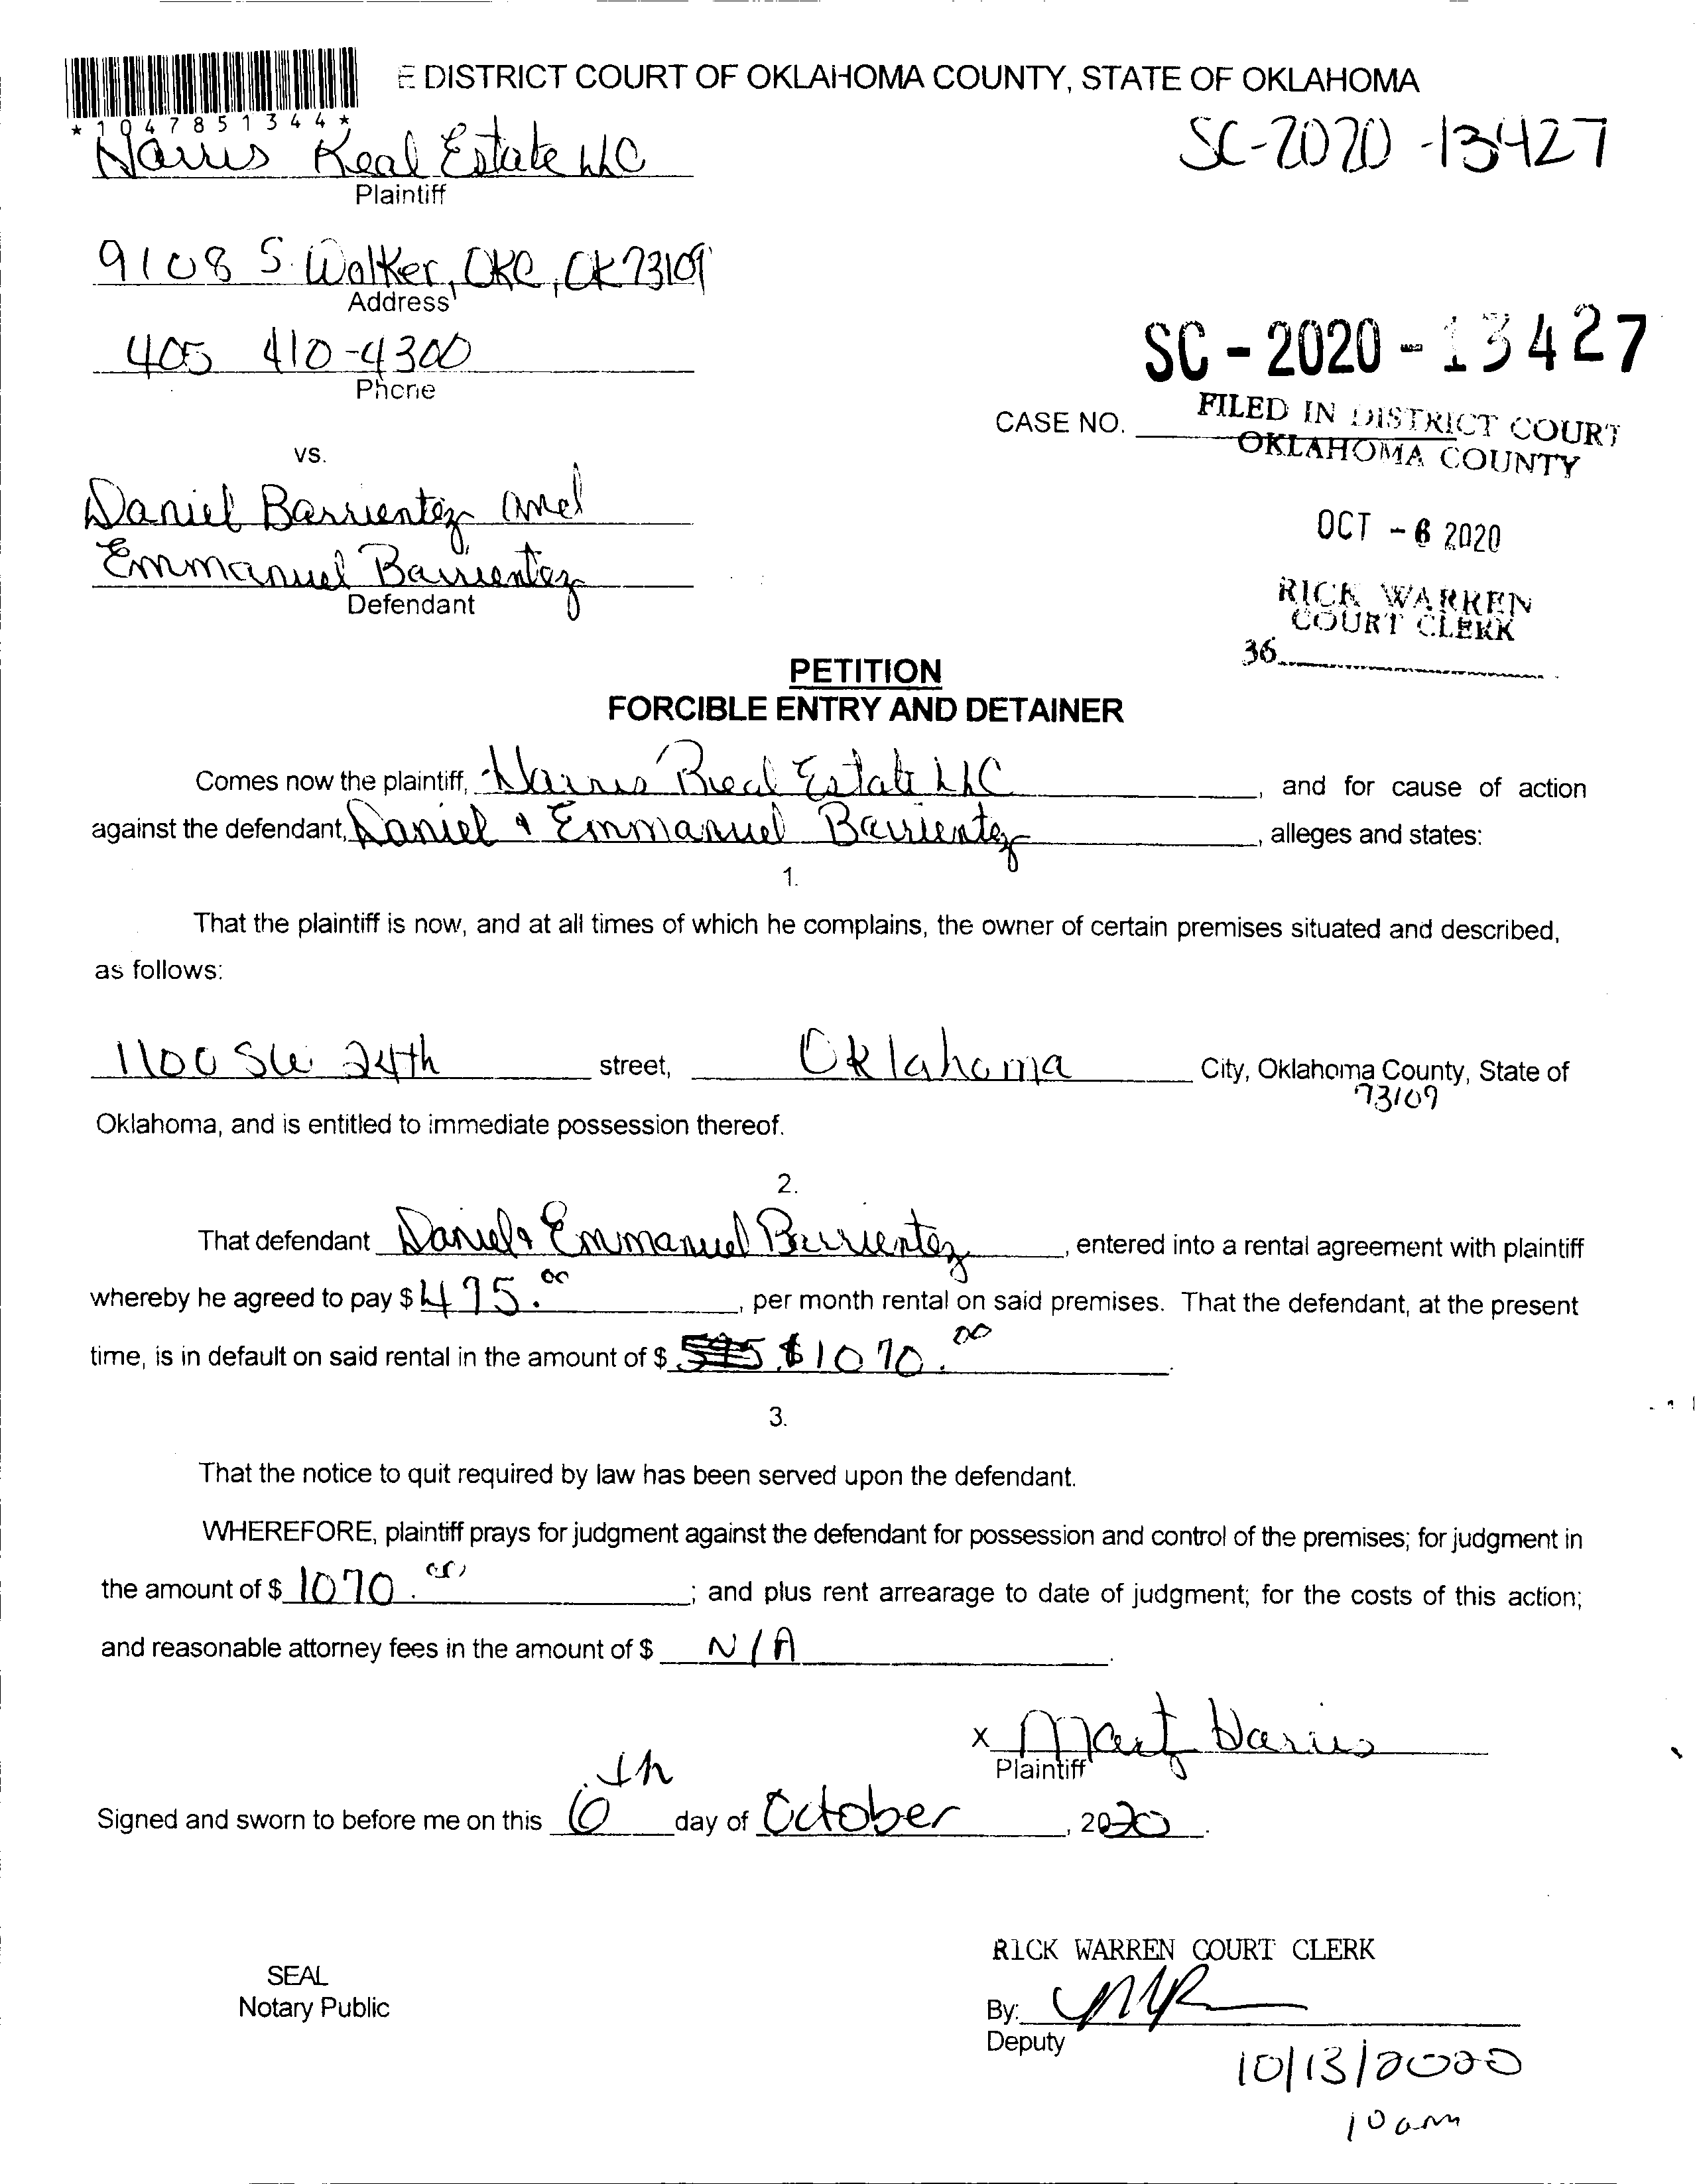 E DISTRICT COURT OF OKLAHOMA COUNTY, STATE OF OKLAHOMA
*1047851344*
Harris Real Estate LLC
SC-2020-13427
Plaintiff
9108 S. Walker, OKC, OK 73109
Address
405 410-4300
Phone
SC-2020-13427
CASE NO.
FILED IN DISTRICT COURT
OKLAHOMA COUNTY
vs.
Daniel Barrientez and
Emmanuel Barrientez
Defendant
OCT -6 2020
RICK WARREN
COURT CLERK
36
PETITION
FORCIBLE ENTRY AND DETAINER
Comes now the plaintiff, Harris Real Estate LLC, and for cause of action
against the defendant, Daniel & Emmanuel Barrientez, alleges and states:
1.
That the plaintiff is now, and at all times of which he complains, the owner of certain premises situated and described,
as follows:
1100 SW 24th street, Oklahoma City, Oklahoma County, State of
73109
Oklahoma, and is entitled to immediate possession thereof.
2.
That defendant Daniel & Emmanuel Barrientez, entered into a rental agreement with plaintiff
whereby he agreed to pay $ 495.00, per month rental on said premises. That the defendant, at the present
time, is in default on said rental in the amount of $ $1070.00.
3.
That the notice to quit required by law has been served upon the defendant.
WHEREFORE, plaintiff prays for judgment against the defendant for possession and control of the premises; for judgment in
the amount of $ 1070.00; and plus rent arrearage to date of judgment; for the costs of this action;
and reasonable attorney fees in the amount of $ N/A.
x Marty Harris
Plaintiff
Signed and sworn to before me on this 6th day of October, 2020.
RICK WARREN COURT CLERK
SEAL
Notary Public
By:
Deputy
10/13/2020
10am